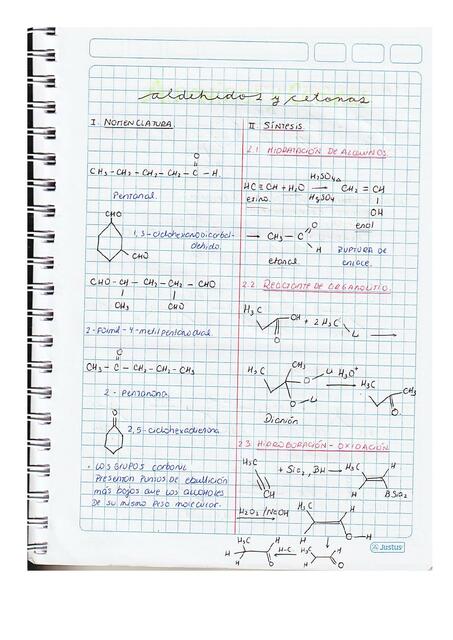 aldehidos y cetonas
I. NOMENCLATURA
O
CH₃ - CH₂ - CH₂ - CH₂ - C - H.
Pentanal.
CHO
1,3-ciclohexanodicarbal-
dehido.
CHO
CHO-CH - CH₂-CH₂ - CHO
CH₃ CHO
2-formil-4-metilpentanodial.
O
CH₃ - C - CH₂ - CH₂ - CH₃
2 - pentanona
O
2,5-ciclohexadienona.
• LOS GRUPOS carbonil
Presentan Puntos de ebullición
más bajos que los alcoholes
de su mismo Peso molecular.
II SÍNTESIS
2.1 HIDRATACIÓN DE ALQUINOS
HC≡CH + H₂O H₂SO₄ HgSO₄ CH₂ = CH
etino. OH
enol
→ CH₃ - C O H
etanal RUPTURA DE
ENLACE.
2.2 REACTANTE DE ORGANOLITIO.
H₃C OH + 2 H₃C Li
O
H₃C CH₃ O - Li H₃O⁺ H₃C CH₃
O - Li O
Dianión
2.3 HIDROBORACIÓN - OXIDACIÓN
H₃C CH + Sia₂ BH → H₃C H
H BSia₂
H₂O₂ / NaOH H₃C H
H O - H
H₃C H O H-C H₃C O
Justus